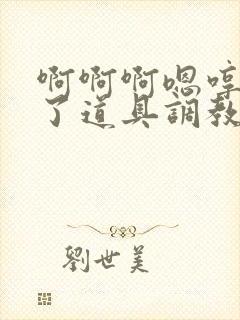 啊啊啊嗯哼
了道具調教
劉世美